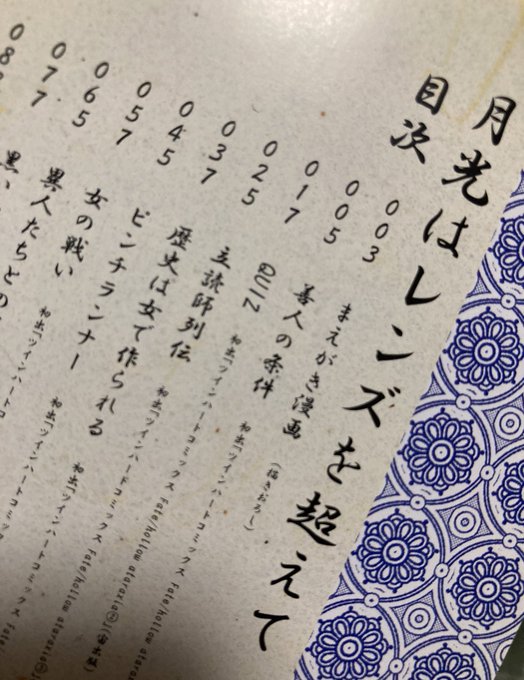 月光はレンズを超えて
目次
003 まえがき漫画 (描きおろし)
005 善人の条件 初出「ツインハートコミックス Fate/hollow ataraxia
017 初出「ツインハートコミックス Fate/hollow ataraxia
025 立読師列伝 初出「ツインハートコミックス Fate/hollow ataraxia
037 歴史は女で作られる 初出「ツインハートコミックス
045 ピンチランナー 初出「ツインハートコミックス
057 女の戦い 初出「ツインハートコミックス Fate
065 異人たちとの
077 黒い